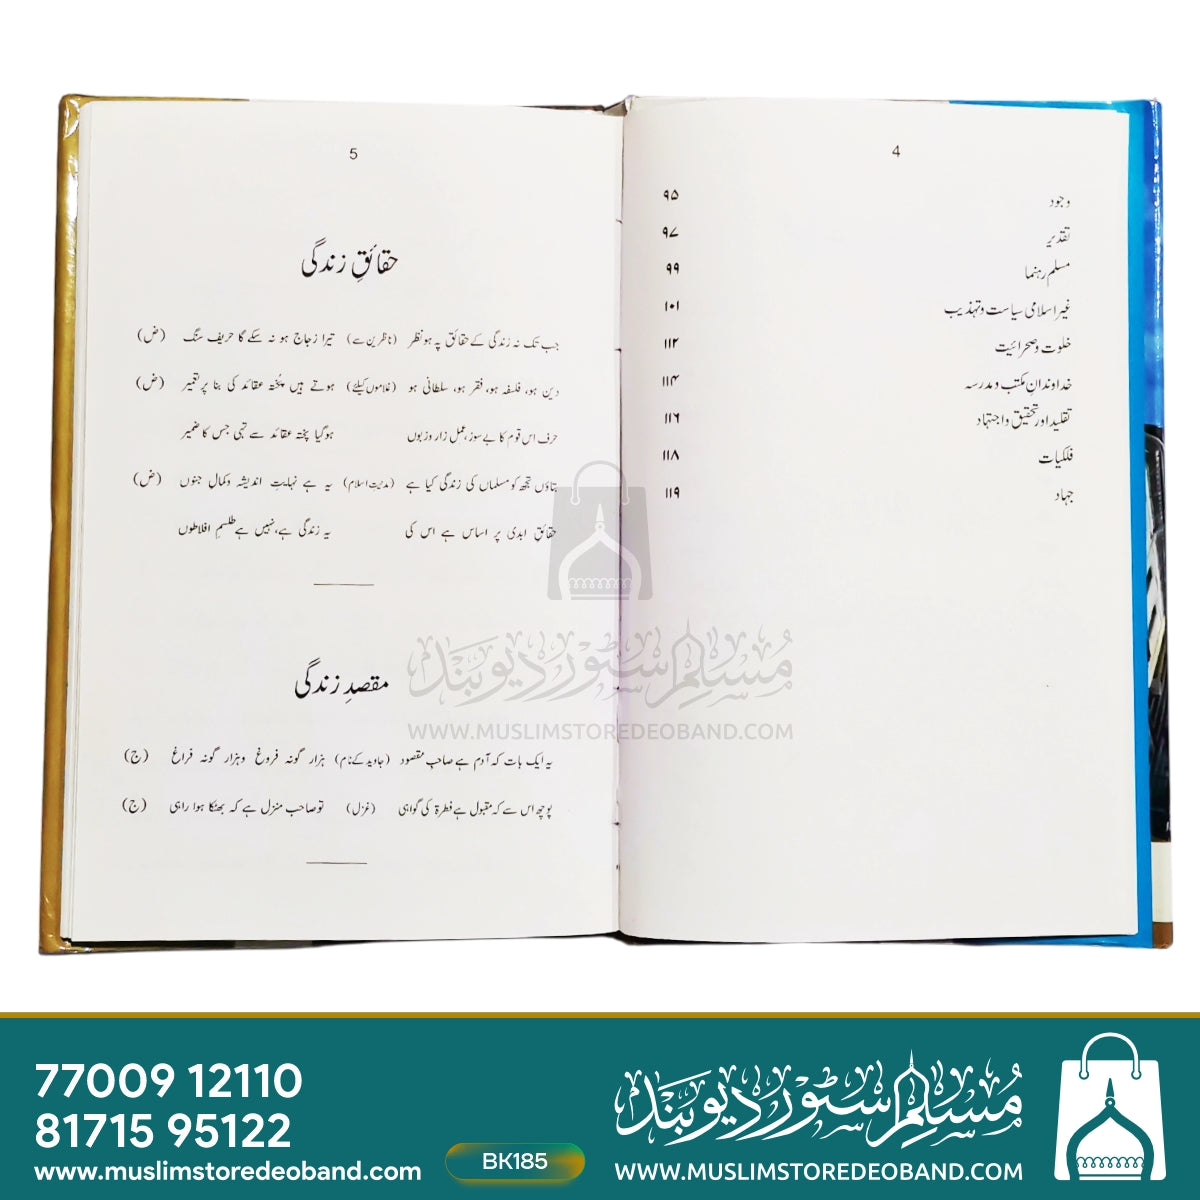 4
وجود ۹۵
تقدیر ۹۷
مسلم رہنما ۹۹
غیر اسلامی سیاست و تہذیب ۱۰۱
خلوت و صحرائیت ۱۱۲
خداوندانِ مکتب و مدرسہ ۱۱۴
تقلید اور تحقیق و اجتہاد ۱۱۶
فلکیات ۱۱۸
جہاد ۱۱۹
5
حقائقِ زندگی
جب تک نہ زندگی کے حقائق پہ ہو نظر (ناظرین سے) تیرا زجاج ہو نہ سکے گا حریف سنگ (ض)
دین ہو، فلسفہ ہو، فقر ہو، سلطانی ہو (غلاموں کیلئے) ہوتے ہیں پختہ عقائد کی بنا پر تعمیر (ض)
حرف اس قوم کا بے سوز، عمل زار و زبوں ہو گیا پختہ عقائد سے تہی جس کا ضمیر
بتاؤں تجھ کو مسلماں کی زندگی کیا ہے (مدنیت اسلام) یہ ہے نہایتِ اندیشہ و کمالِ جنوں (ض)
حقائقِ ابدی پر اساس ہے اس کی یہ زندگی ہے، نہیں ہے طلسمِ افلاطوں
مقصدِ زندگی
یہ ایک بات کہ آدم ہے صاحبِ مقصود (جاوید کے نام) ہزار گونہ فروغ و ہزار گونہ فراغ (ج)
پوچھ اس سے کہ مقبول ہے فطرۃ کی گواہی (غزل) تو صاحب منزل ہے کہ بھٹکا ہوا راہی (ج)
مُسلم سٹور دیوبند
WWW.MUSLIMSTOREDEOBAND.COM
77009 12110
81715 95122
www.muslimstoredeoband.com
BK185
مُسلم سٹور دیوبند
WWW.MUSLIMSTOREDEOBAND.COM